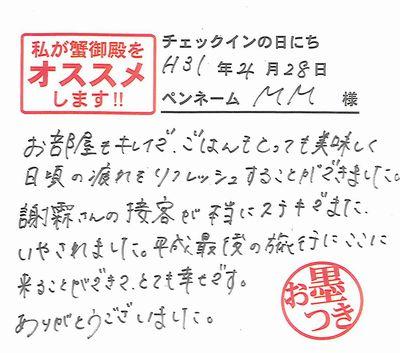 私が蟹御殿を
オススメ
します!!
チェックインの日にち
H31年4月28日
ペンネーム MM 様
お部屋もキレイで、ごはんもとっても美味しく
日頃の疲れをリフレッシュすることができました。
謝霖さんの接客が本当にステキでまた、
いやされました。平成最後の旅行にここに
来ることができて、とても幸せです。
ありがとうございました。
お墨つき